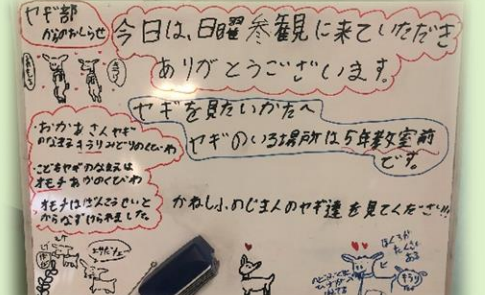 ヤギ部
からのおしらせ
今日は、日曜参観に来ていただき
ありがとうございます。
ヤギを見たいかたへ
ヤギのいる場所は5年教室前
です。
・おかあさんヤギ
のなまえきうりみどりのくびわ
・こどもヤギのなまえは
オモチあかのくびわ
オモチはばんごうせいと
からなずけられました。
かねし小のじまんのヤギ達を見てください!!